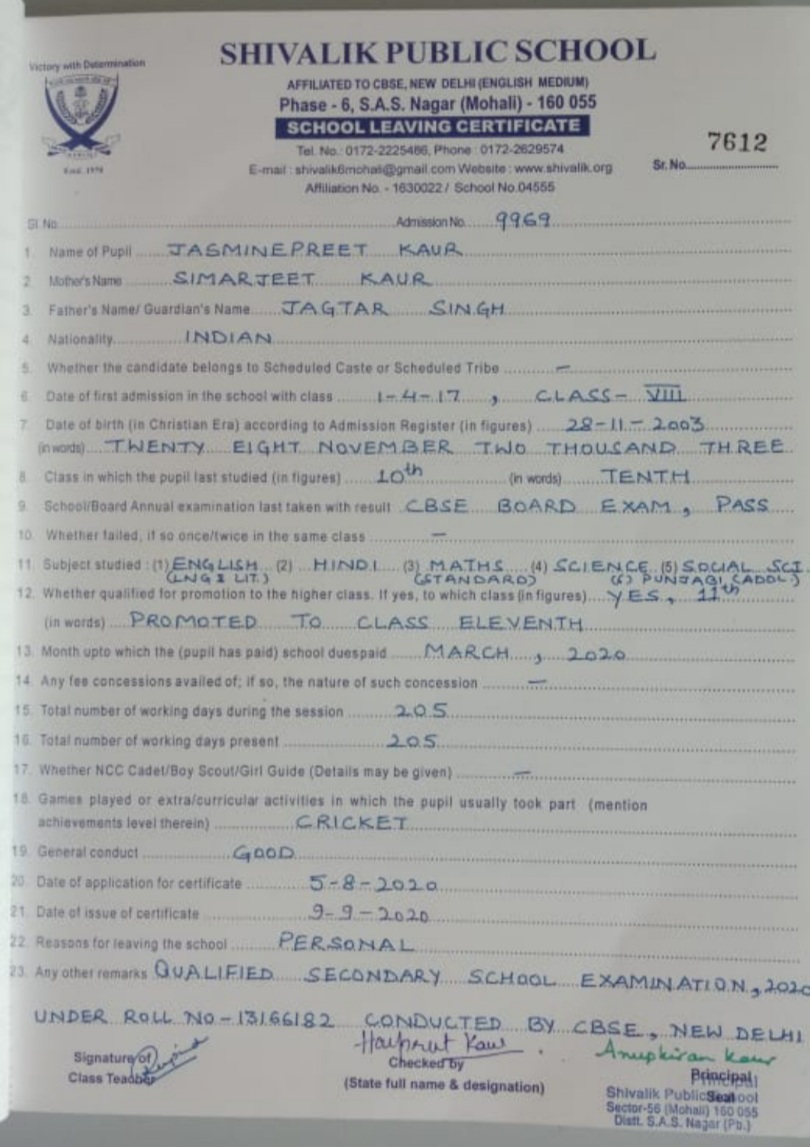 Victory with Determination
SHIVALIK PUBLIC SCHOOL
AFFILIATED TO CBSE, NEW DELHI (ENGLISH MEDIUM)
Phase - 6, S.A.S. Nagar (Mohali) - 160 055
SCHOOL LEAVING CERTIFICATE
Tel. No. : 0172-2225486, Phone : 0172-2629574
E-mail : shivalik6mohali@gmail.com Website : www.shivalik.org
Affiliation No. - 1630022 / School No.04555
7612
Sr. No.
Estd. 1970
Sl No. Admission No. 9969
1. Name of Pupil JASMINEPREET KAUR
2. Mother's Name SIMARJEET KAUR
3. Father's Name/ Guardian's Name JAGTAR SINGH
4. Nationality INDIAN
5. Whether the candidate belongs to Scheduled Caste or Scheduled Tribe —
6. Date of first admission in the school with class 1-4-17, CLASS- VIII
7. Date of birth (in Christian Era) according to Admission Register (in figures) 28-11-2003
(in words) TWENTY EIGHT NOVEMBER TWO THOUSAND THREE
8. Class in which the pupil last studied (in figures) 10th (in words) TENTH
9. School/Board Annual examination last taken with result CBSE BOARD EXAM, PASS
10. Whether failed, if so once/twice in the same class —
11. Subject studied : (1) ENGLISH (2) HINDI (3) MATHS (4) SCIENCE (5) SOCIAL SCI
(LNG & LIT.) (STANDARD) (6) PUNJABI (ADDL.)
12. Whether qualified for promotion to the higher class. If yes, to which class (in figures) YES, 11th
(in words) PROMOTED TO CLASS ELEVENTH
13. Month upto which the (pupil has paid) school duespaid MARCH, 2020
14. Any fee concessions availed of; if so, the nature of such concession —
15. Total number of working days during the session 205
16. Total number of working days present 205
17. Whether NCC Cadet/Boy Scout/Girl Guide (Details may be given) —
18. Games played or extra/curricular activities in which the pupil usually took part (mention
achievements level therein) CRICKET
19. General conduct GOOD
20. Date of application for certificate 5-8-2020
21. Date of issue of certificate 9-9-2020
22. Reasons for leaving the school PERSONAL
23. Any other remarks QUALIFIED SECONDARY SCHOOL EXAMINATION, 2020
UNDER ROLL NO-13166182 CONDUCTED BY CBSE, NEW DELHI
Signature of
Class Teacher
Harpreet Kaur
Checked by
(State full name & designation)
Anupkiran Kaur
Principal
Principal
Seal
Shivalik Public School
Sector-56 (Mohali) 160 055
Distt. S.A.S. Nagar (Pb.)